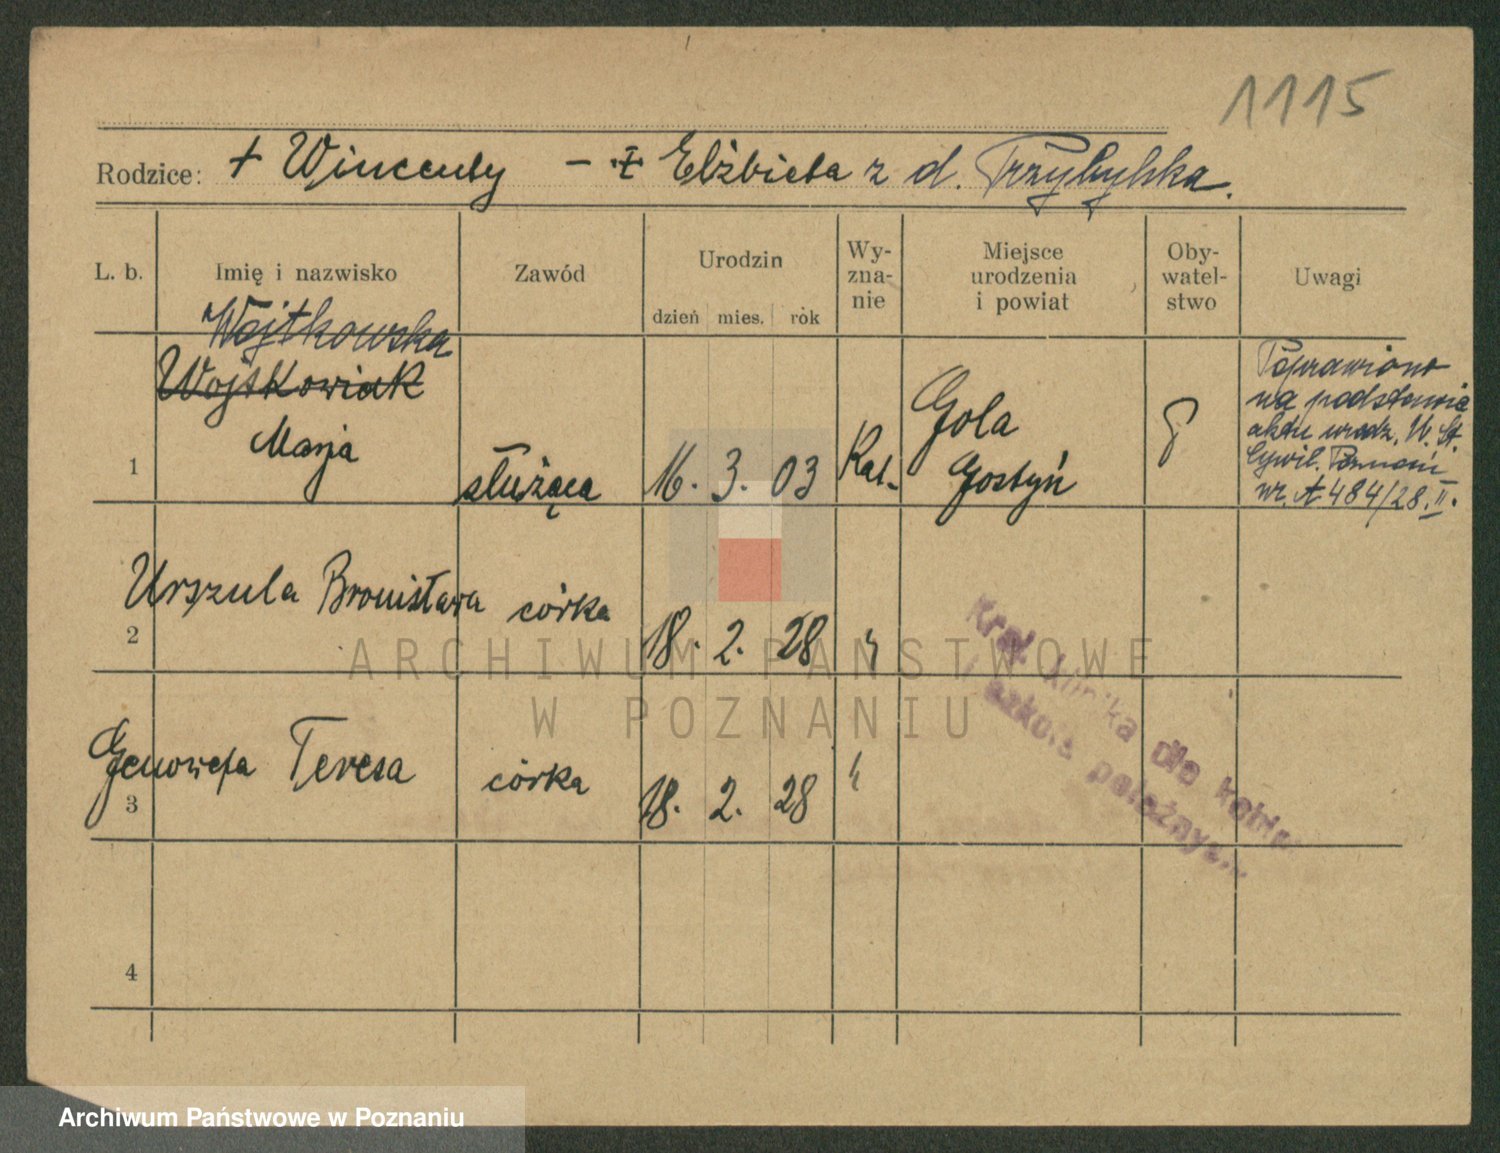 1115
Rodzice: + Wincenty - + Elżbieta z d. Przybylska.
L. b. Imię i nazwisko Zawód Urodzin dzień mies. rok Wy-zna-nie Miejsce urodzenia i powiat Oby-watel-stwo Uwagi
Wojtkowska
Wojtkowiak
Marja
1 służąca 16. 3. 03 Kat. Gola
Gostyń
Poprawiono
na podstawie
aktu urodz. U. St.
Cywil. Poznań
nr. A 484/28. II.
Urszula Bronisława córka
2 18. 2. 28 "
Genowefa Teresa córka
3 18. 2. 28 "
4
Kraj. klinika dla kobiet
szkoła położnych
ARCHIWUM PAŃSTWOWE
W POZNANIU
Archiwum Państwowe w Poznaniu